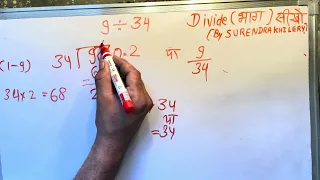 9 ÷ 34
Divide (भाग) सीखो
(By SURENDRA KHILERY)
(1-9)
34 9 0.2 या 9/34
34×2=68
34
या
=34